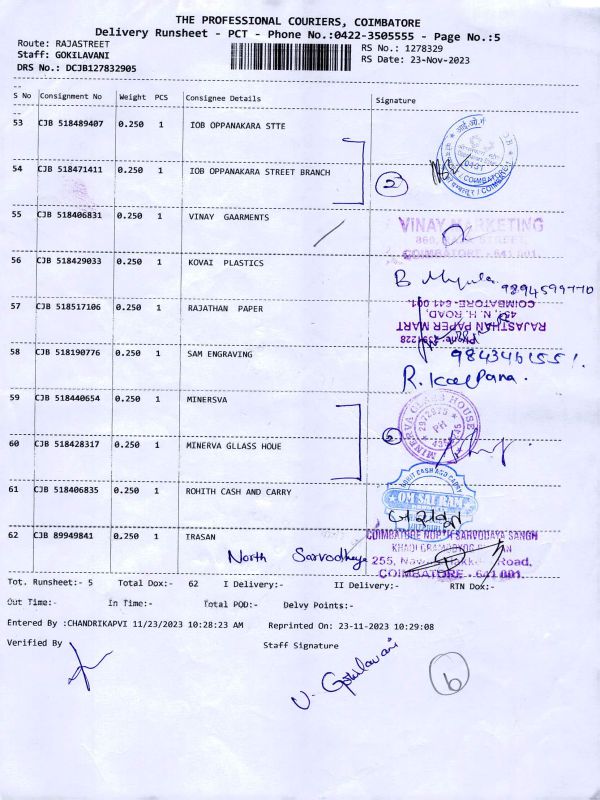 THE PROFESSIONAL COURIERS, COIMBATORE
Delivery Runsheet - PCT - Phone No.:0422-3505555 - Page No.:5
Route: RAJASTREET
RS No.: 1278329
Staff: GOKILAVANI
RS Date: 23-Nov-2023
DRS No.: DCJB127832905
S No Consignment No Weight PCS Consignee Details Signature
53 CJB 518489407 0.250 1 IOB OPPANAKARA STTE
54 CJB 518471411 0.250 1 IOB OPPANAKARA STREET BRANCH
2
55 CJB 518406831 0.250 1 VINAY GAARMENTS
VINAY MARKETING
STREET,
COIMBATORE - 641 001.
56 CJB 518429033 0.250 1 KOVAI PLASTICS
9894599770
57 CJB 518517106 0.250 1 RAJATHAN PAPER
RAJASTHAN PAPER MART
N. H. ROAD,
COIMBATORE- 641 001.
58 CJB 518190776 0.250 1 SAM ENGRAVING
9843461551
R. Kalpana.
59 CJB 518440654 0.250 1 MINERSVA
MINERVA GLASS HOUSE
60 CJB 518428317 0.250 1 MINERVA GLLASS HOUE
61 CJB 518406835 0.250 1 ROHITH CASH AND CARRY
ROHIT CASH AND CARRY
OM SAI RAM
62 CJB 89949841 0.250 1 IRASAN
North Sarvodhaya
COIMBATORE NORTH SARVODAYA SANGH
255, Road,
COIMBATORE - 641 001.
Tot. Runsheet:- 5 Total Dox:- 62 I Delivery:- II Delivery:- RTN Dox:-
Out Time:- In Time:- Total POD:- Delvy Points:-
Entered By :CHANDRIKAPVI 11/23/2023 10:28:23 AM Reprinted On: 23-11-2023 10:29:08
Verified By Staff Signature
V. Gokilavani
6